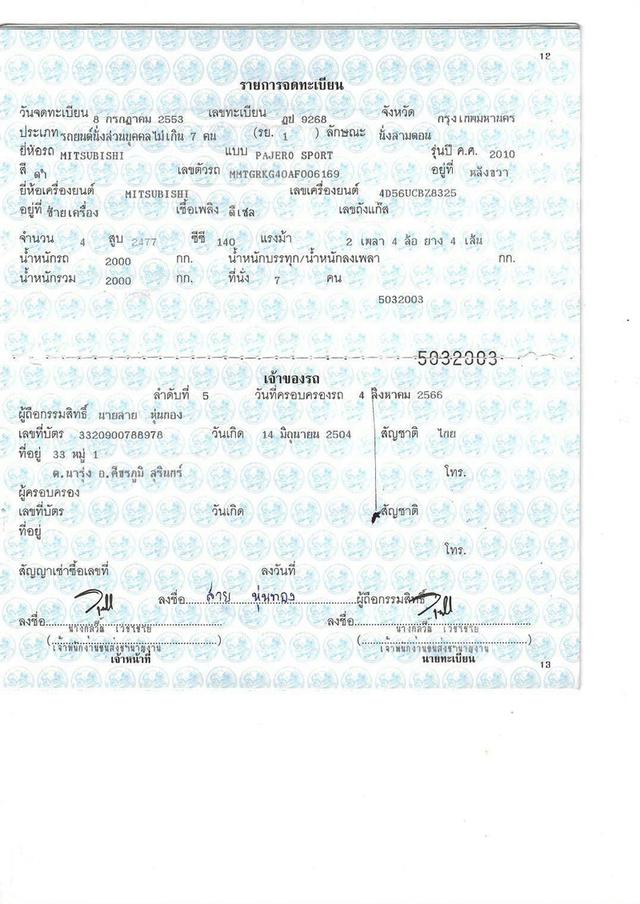 12
รายการจดทะเบียน
วันจดทะเบียน 8 กรกฎาคม 2553 เลขทะเบียน ฎป 9268 จังหวัด กรุงเทพมหานคร
ประเภท รถยนต์นั่งส่วนบุคคลไม่เกิน 7 คน (รย. 1 ) ลักษณะ นั่งสามตอน
ยี่ห้อรถ MITSUBISHI แบบ PAJERO SPORT รุ่นปี ค.ศ. 2010
สี ดำ เลขตัวรถ MMTGRKG40AF006169 อยู่ที่ หลังขวา
ยี่ห้อเครื่องยนต์ MITSUBISHI เลขเครื่องยนต์ 4D56UCBZ8325
อยู่ที่ ซ้ายเครื่อง เชื้อเพลิง ดีเซล เลขถังแก๊ส
จำนวน 4 สูบ 2477 ซีซี 140 แรงม้า 2 เพลา 4 ล้อ ยาง 4 เส้น
น้ำหนักรถ 2000 กก. น้ำหนักบรรทุก/น้ำหนักลงเพลา กก.
น้ำหนักรวม 2000 กก. ที่นั่ง 7 คน
5032003
5032003
เจ้าของรถ
ลำดับที่ 5 วันที่ครอบครองรถ 4 สิงหาคม 2566
ผู้ถือกรรมสิทธิ์ นายลาย หุ่นทอง
เลขที่บัตร 3320900788978 วันเกิด 14 มิถุนายน 2504 สัญชาติ ไทย
ที่อยู่ 33 หมู่ 1
ต.นารุ่ง อ.ศีขรภูมิ สุรินทร์ โทร.
ผู้ครอบครอง
เลขที่บัตร วันเกิด สัญชาติ
ที่อยู่
โทร.
สัญญาเช่าซื้อเลขที่ ลงวันที่
ลงชื่อ ลาย หุ่นทอง ผู้ถือกรรมสิทธิ์
ลงชื่อ ลงชื่อ
เจ้าพนักงานขนส่งชำนาญงาน เจ้าพนักงานขนส่งชำนาญงาน
เจ้าหน้าที่ นายทะเบียน
13